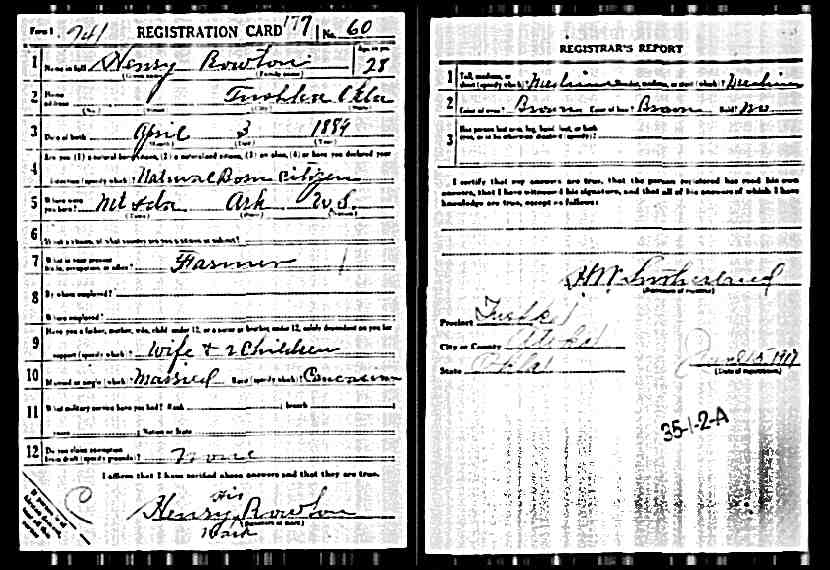 Form 1 741 REGISTRATION CARD 177 No. 60
1 Name in full Henry Rowton Age, in yrs. 28
(Given name) (Family name)
2 Home address Tushka Okla
(No.) (Street) (City) (State)
3 Date of birth April 3 1889
(Month) (Day) (Year)
4 Are you (1) a natural-born citizen, (2) a naturalized citizen, (3) an alien, (4) or have you declared your
intention (specify which)? Natural Born Citizen
5 Where were you born? Mt Ida Ark U.S.
(Town) (State) (Nation)
6 If not a citizen, of what country are you a citizen or subject?
7 What is your present trade, occupation, or office? Farmer
8 By whom employed?
Where employed?
9 Have you a father, mother, wife, child under 12, or a sister or brother under 12, solely dependent on you for
support (specify which)? Wife & 2 Children
10 Married or single (which)? Married Race (specify which)? Caucasian
11 What military service have you had? Rank ; branch ;
years ; Nation or State
12 Do you claim exemption from draft (specify grounds)? None
I affirm that I have verified above answers and that they are true.
his
Henry Rowton
(Signature or mark)
Mark
REGISTRAR'S REPORT
1 Tall, medium, or short (specify which)? Medium Slender, medium, or stout (which)? Medium
2 Color of eyes? Brown Color of hair? Brown Bald? No
3 Has person lost arm, leg, hand, foot, or both
eyes, or is he otherwise disabled (specify)?
I certify that my answers are true, that the person registered has read his own
answers, that I have witnessed his signature, and that all of his answers of which I have
knowledge are true, except as follows:
(Signature of registrar)
Precinct Tushka
City or County Atoka
State Okla June 5 1917
(Date of registration)
35-1-2-A